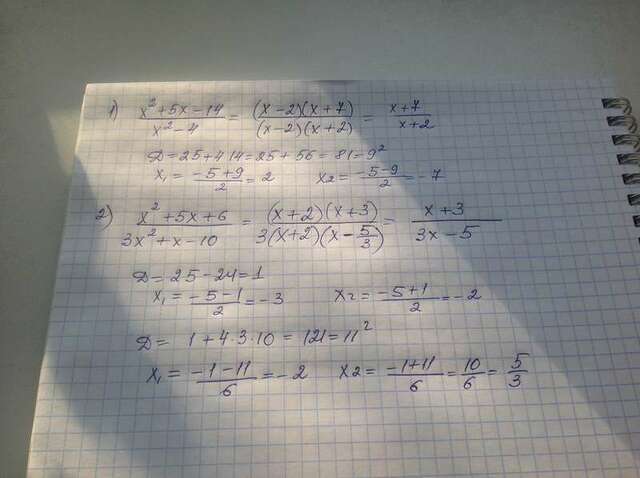 1) (x²+5x-14)/(x²-4) = ((x-2)(x+7))/((x-2)(x+2)) = (x+7)/(x+2)
D=25+4·14=25+56=81=9²
x₁=(-5+9)/2=2 x₂=(-5-9)/2=-7
2) (x²+5x+6)/(3x²+x-10) = ((x+2)(x+3))/(3(x+2)(x-5/3)) = (x+3)/(3x-5)
D=25-24=1
x₁=(-5-1)/2=-3 x₂=(-5+1)/2=-2
D= 1+4·3·10=121=11²
x₁=(-1-11)/6=-2 x₂=(-1+11)/6=10/6=5/3